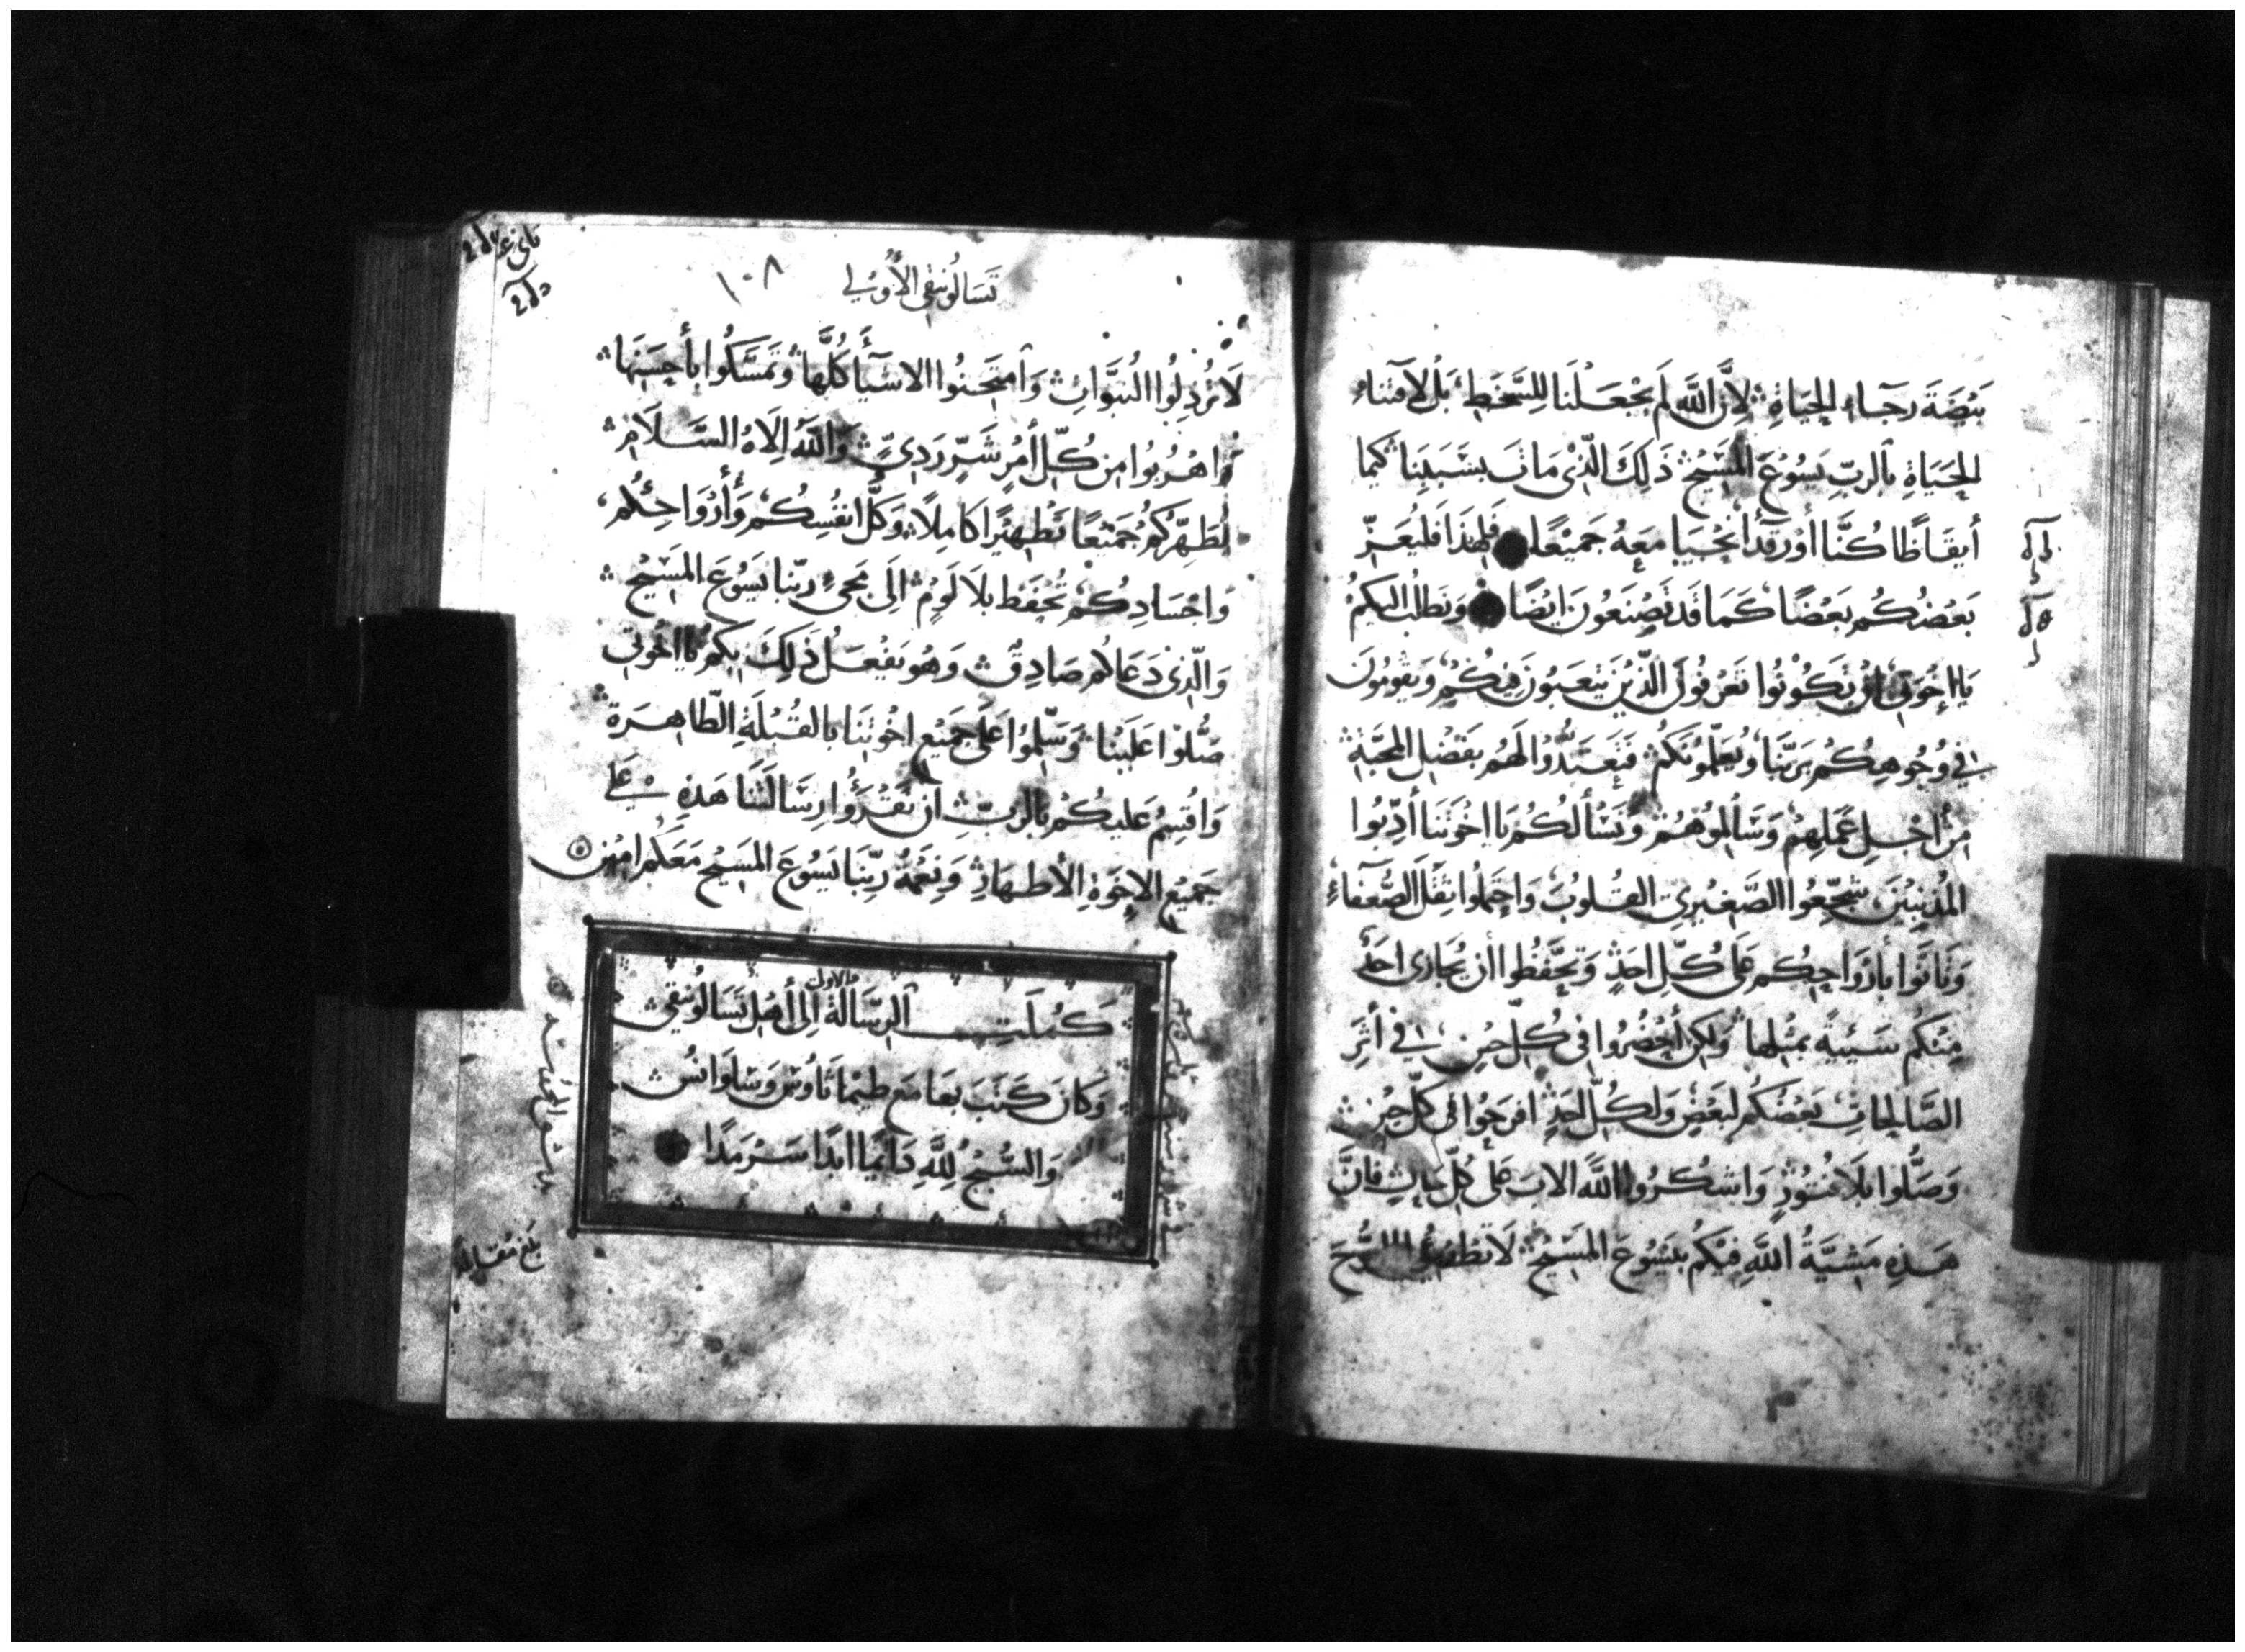 بَيْضَةَ رَجَاءِ الحَيَاةِ لِأَنَّ اللَّهَ لَمْ يَجْعَلْنَا لِلسَّخَطِ بَلْ لاقتناء
الحَيَاةِ بِالرَبِّ يَسُوْعَ المَسِيْحِ ذَلِكَ الَّذِي مَاتَ بِسَبَبِنَا كَيما
أيقَاظًا كُنَّا أوْ رقدًا نَحْيَا مَعَهُ جَمِيْعًا فَلِهَذَا فَليُعَزِّ
بَعْضُكُم بَعْضًا كَمَا قَد تَصْنَعُونَ ايْضًا وَنَطلُبُ اليكُمْ
يَا إخْوَتِي انْ تَكُوْنُوا تَعْرفُونَ الَّذِيْنَ يَتْعَبُونَ فِيْكُمْ وَيَقُومُونَ
فِي وُجُوهِكُمْ بِرَبِّنَا وَيُعَلِّمُونَكُمْ فَتَعتَدُّوْا لَهُمْ بِفَضْلِ المَحَبَّةِ
مِنْ اجْلِ عَمَلِهِمْ وَسَالِمُوْهُمْ وَنَسْأَلُكُمْ يَا اخوَتَنَا أدِّبُوا
المُذْنِبِيْنَ شَجِّعُوا الصَّغِيْرِي القُلوُبِ وَاحْمِلُوا ثِقَلَ الضُّعَفَاءِ
وَتَأنَّوا بِأَرْوَاحِكُم عَلَى كُلِّ احَدٍ وَتَحَفَّظُوا أن يُجَازِى احَدٌ
مِنْكُم سَيِّئَةً بِمِثْلِهَا وَلكِن أحْضُرُوا فِى كُلِّ حِيْنٍ فِي أَثَرِ
الصَّالِحَاتِ بَعْضُكُم لِبَعْضٍ وَلِكُلِّ احَدٍ افرَحُوا فِى كُلِّ حِيْنٍ
وَصَلُّوا بِلَا فُتُوْرٍ وَاشكُرُوا اللَّهَ الابَ عَلَى كُلِّ حَالٍ فَإِنَّ
هَذِهِ مَشِيَّةُ اللَّهِ فِيْكُمْ بِيَسُوْعَ المَسِيْحِ لَا تطْفِئُوا الرُّوْحَ
تَسَالُونِيقِى الأُوْلي
١٠٨
لَا تُرْذِلُوا النُبَوَّاتِ وَامتَحِنُوا الاشيَآءَ كُلَّهَا وَتَمَسَّكُوا بِأَحسَنِهَا
وَاهْرُبُوا مِن كُلِّ أَمْرٍ شَرٍّ رَدِيٍّ وَاللَّهُ إِلَاهُ السَّلَامِ
يُطَهِّرُكُمْ جَمِيْعًا تَطْهِيْرًا كَامِلًا وَكُلَّ انفُسِكُمْ وَأَرْوَاحِكُم
وَاجْسَادِكُم تُحْفَظ بِلَا لَوْمٍ إِلَى مَجِىْءِ رَبِّنَا يَسُوْعَ المَسِيْحِ
وَالَّذِى دَعَاكُم صَادِقٌ وَهُو يَفْعَلُ ذَلِكَ بِكُمْ يَا اخْوَتِي
صَلُّوْا عَلَيْنَا وَسَلِّمُوْا عَلَى جَمِيْعِ اخْوَتِنَا بِالقُبْلَةِ الطَّاهِرَةِ
وَاُقْسِمُ عَلَيكُمْ بِالرَبِّ أن تَقْرَؤُا رِسَالَتَنَا هَذِهِ عَلَى
جَمِيْعِ الإِخْوَةِ الأَطهَارِ وَنِعْمَةُ رَبِّنَا يَسُوْعَ المَسِيْحِ مَعَكُم امِيْن
كَمُلَتِ الرِّسَالَةُ الاولى إِلَى أَهْلِ تَسَالُونِيقِى
وَكَانَ كَتَبَ بِهَا مَع طِيمَاثَاوُس وَسَلوَانُس
وَالسُّبْحُ لِلَّهِ دَائِمًا ابَدًا سَرْمَدًا
بلغ مقابله